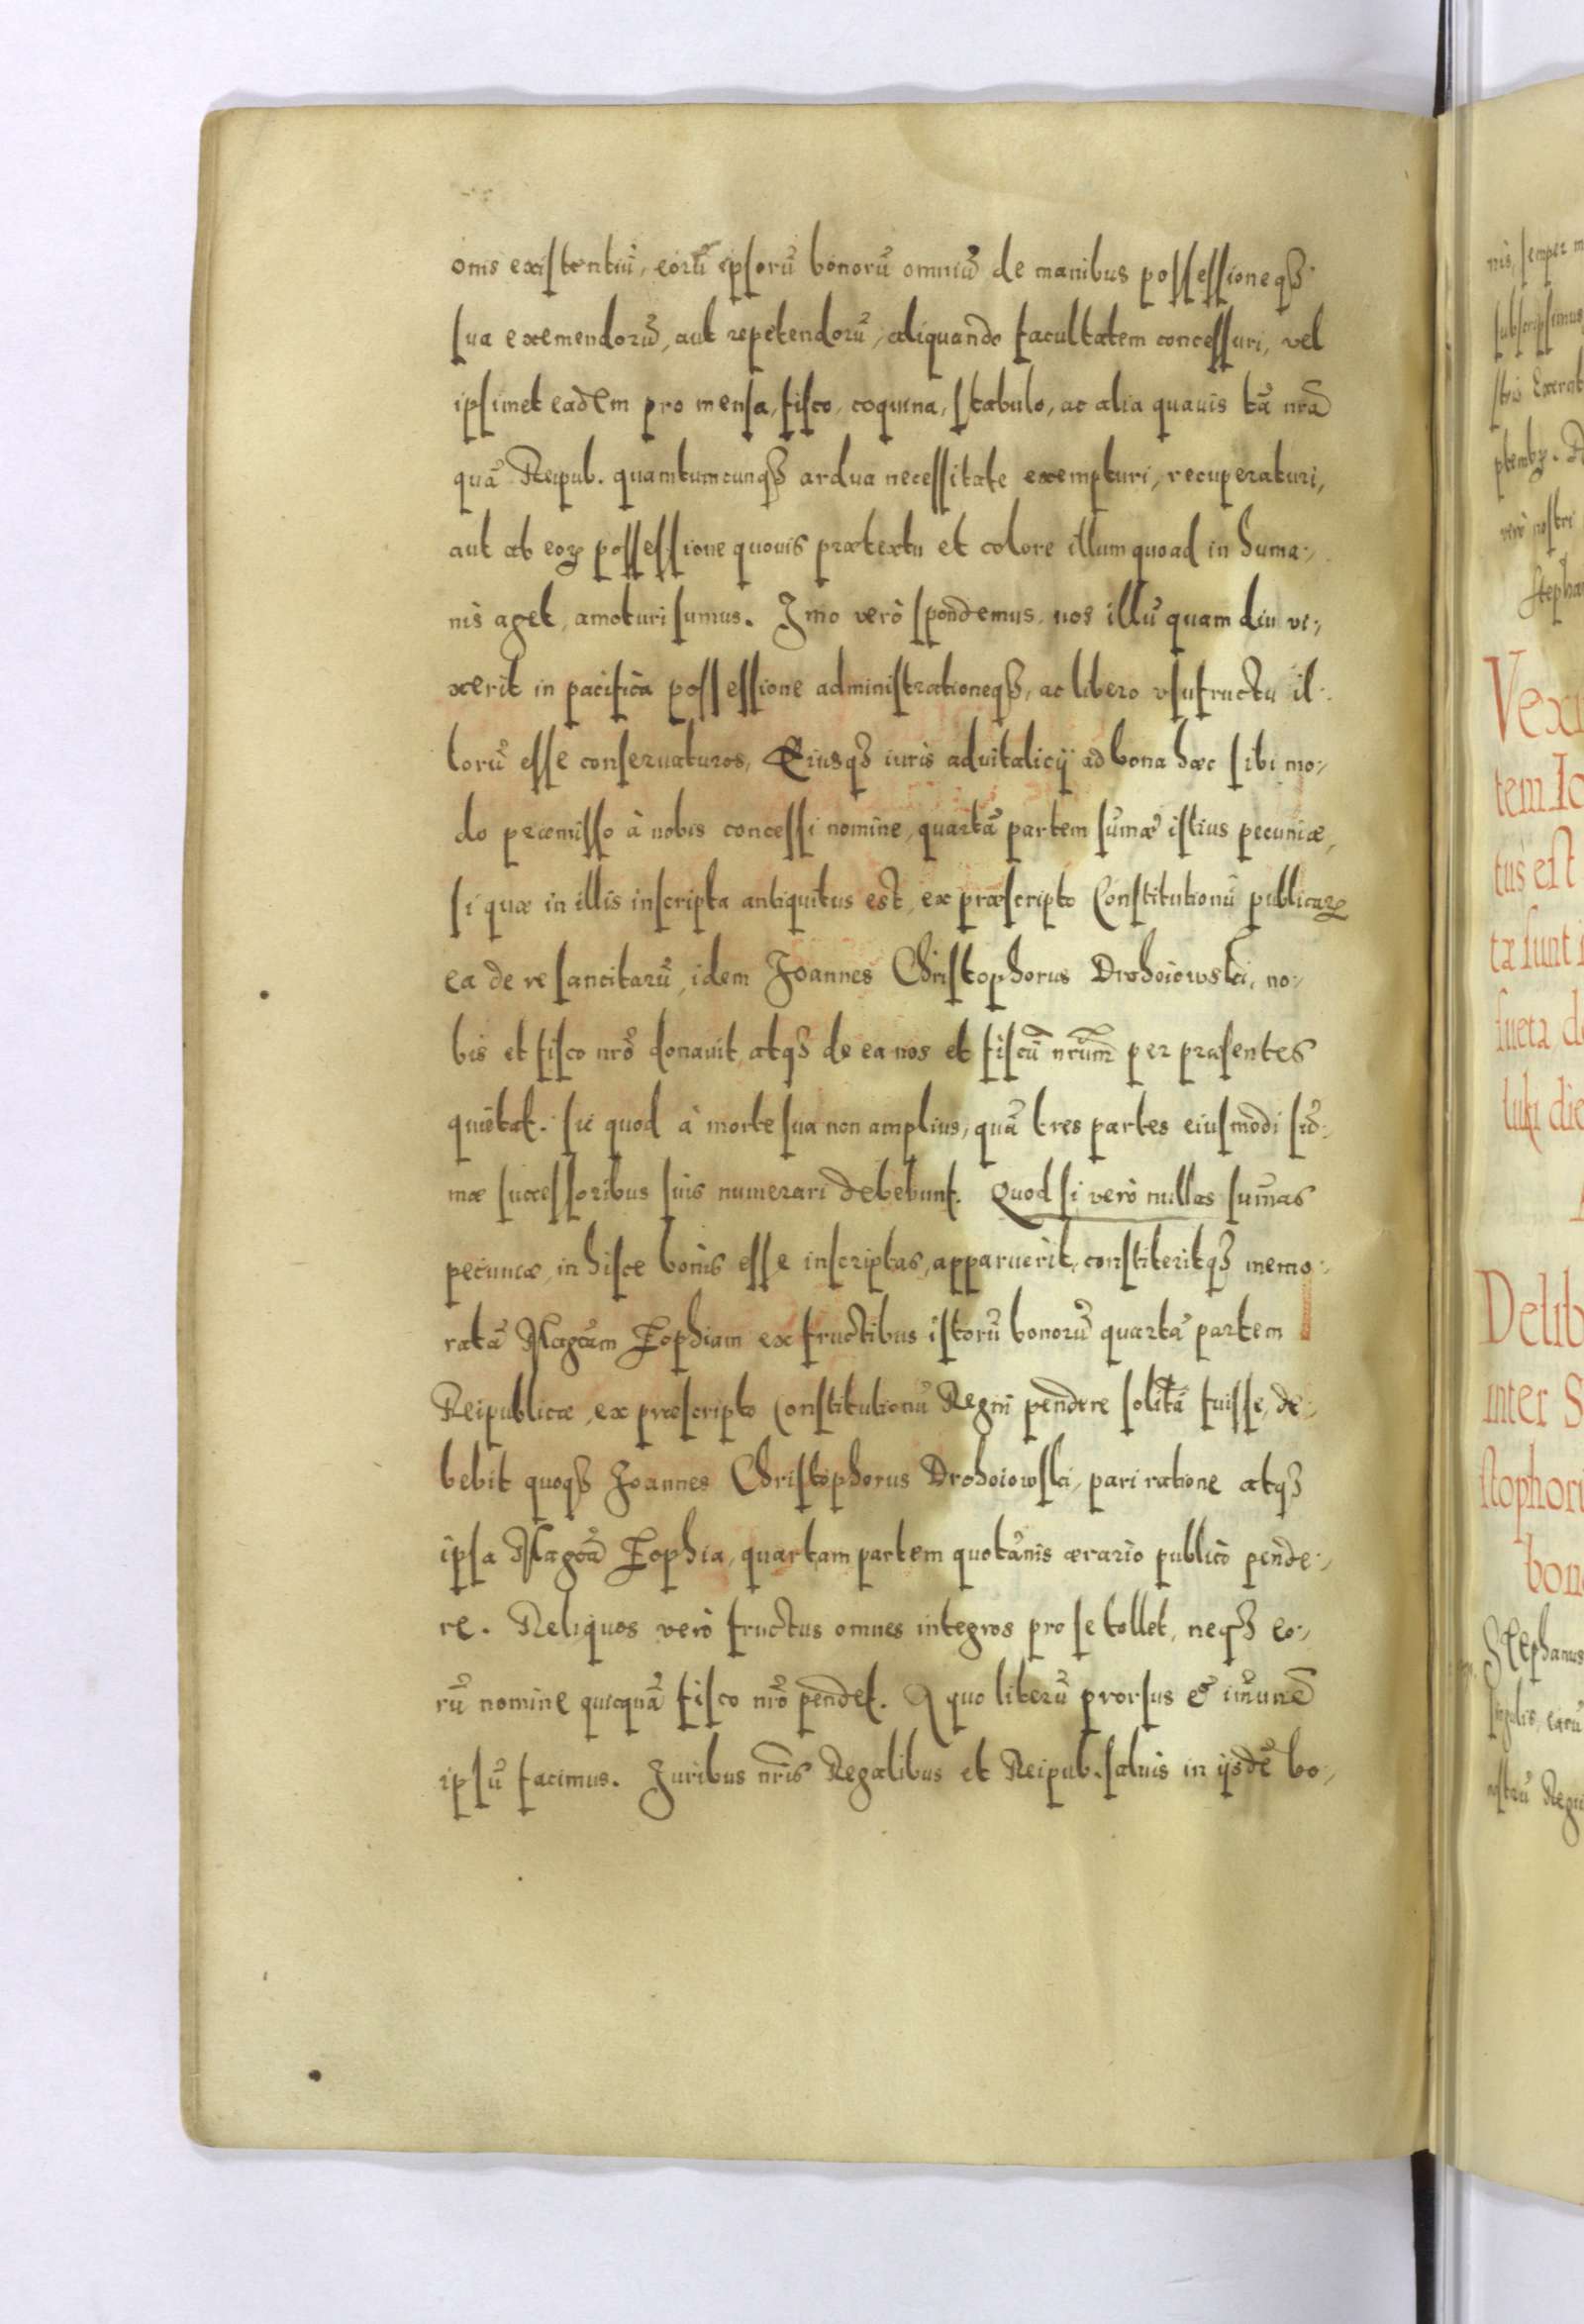 onis existentiũ, eorũ ipsorũ bonorũ omniũ de manibus possessioneqȝ
sua exemendorũ, aut repetendorũ, aliquando facultatem concessuri, vel
ipsimet eadem pro mensa, fisco, coquina, stabulo, ac alia quauis tã nrã
quã Reipub. quamtumcunqȝ ardua necessitate exempturi, recuperaturi,
aut ab eorꝝ possessione quouis prætextu et colore illum quoad in huma:,
nis aget, amoturi sumus. Imo verò spondemus, nos illũ quam diu vi:,
xerit in pacifica possessione administrationeqȝ, ac libero vsufructu il:
lorũ esse conseruaturos, Eiusqȝ iuris aduitalicij ad bona hæc sibi mo:,
do præmisso à nobis concessi nomine, quartã partem sum̃æ istius pecuniæ,
si quæ in illis inscripta antiquitus est, ex præscripto Constitutionũ publicarꝝ
ea de re sancitarũ, idem Joannes Christophorus Drohoiowski, no:,
bis et fisco nrõ donauit, atqȝ de ea nos et fiscũ nrũm per præsentes
quietat. Sic quod à morte sua non amplius, quã tres partes eiusmodi sũ:
mæ successoribus suis numerari debebunt. Quod si verò nullas sum̃as
pecuniæ, in hisce bonis esse inscriptas, apparuerit, constiteritqȝ memo:,
ratã Magcãm Zophiam ex fructibus istorũ bonorũ quartã partem
Reipublicæ, ex præscripto Constitutionũ Regni pendere solitã fuisse, de:,
bebit quoqȝ Joannes Christophorus Drohoiowski, pari ratione atqȝ
ipsa Magcã Zophia, quartam partem quotãnis ærario publico pende:,
re. Reliquos verò fructus omnes integros pro se tollet, neqȝ eo:,
rũ nomine quicquã fisco nrõ pendet. A quo liberũ prorsus & im̃unẽ
ipsũ facimus. Juribus nrĩs Regalibus et Reipub. saluis in ijsdẽ bo:,
nis, semper
subscripsimus
ptembȝ.
nostri
Vexi
tem Jo
tus est
tæ sunt
sueta
Delib
inter S
stophori
bon
Stephanus